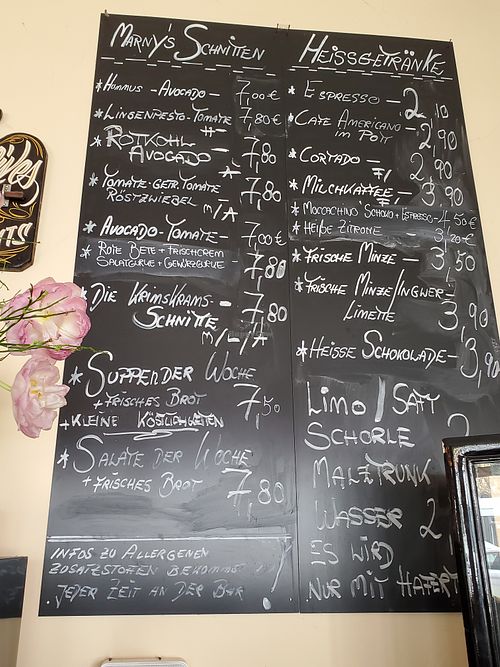 Marny's Schnitten
* Hummus - Avocado - 7,00€
* Linsenpesto-Tomate 7,80€
* Rotkohl Avocado 7,80
* Tomate-getr. Tomate 7,80
Röstzwiebel
* Avocado-Tomate- 7,00€
* Rote Bete + Frischcrem 7,80
Salatgurke + Gewürzgurke
* Die KrimsKrams- 7,80
Schnitte
* Suppe der Woche
+ frisches Brot 7,50
+ kleine Köstlichkeiten
* Salate der Woche
+ frisches Brot 7,80
Infos zu Allergenen
Zusatzstoffen
jeder Zeit an der Bar
Heissgetränke
* Espresso - 2,10
* Cafe Americano - 2,90
im Pott
* Cortado - 2,90
* Milchkaffee, - 3,90
* Moccachino Schoko + Espresso - 4,50€
* Heiße Zitrone - 3,20€
* Frische Minze - 3,50
* Frische Minze/Ingwer-
Limette 3,90
* Heisse Schokolade - 3,90
Limo / Saft
Schorle
Malztrunk
Wasser 2
Es wird
nur mit Hafer